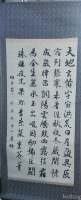 天地玄黃宇宙洪荒日月盈昃辰
宿列張寒來暑往秋收冬藏閏餘
成歲律呂調陽雲騰致雨露結為
霜金生麗水玉出崑岡劍號巨闕
珠稱夜光果珍李柰菜重芥薑